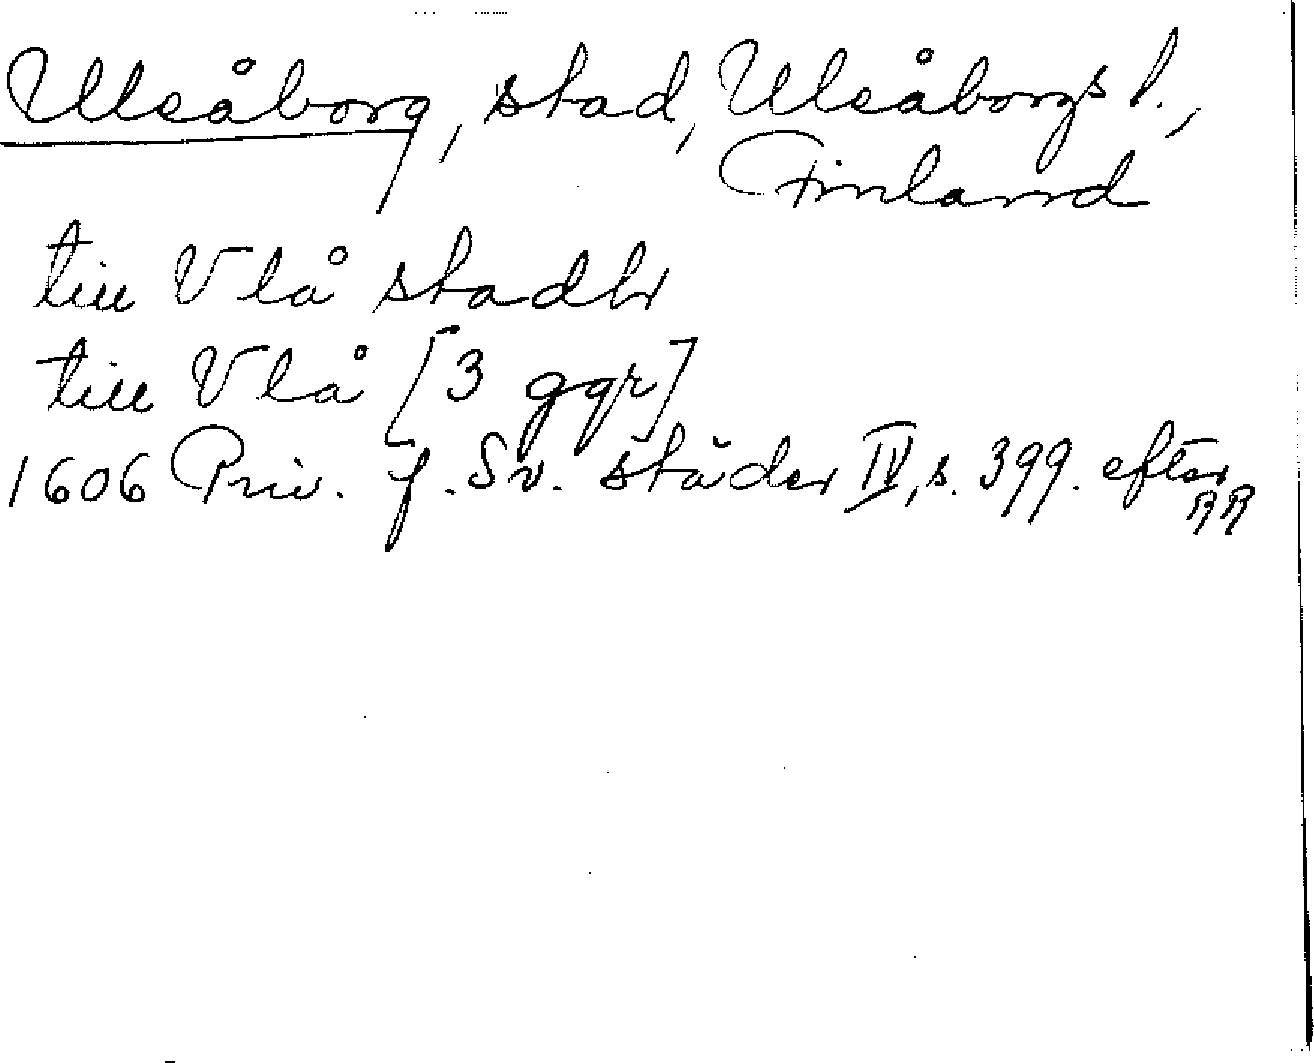 Uleåborg, stad, Uleåborgs l.,
Finland
till Vlå stadhr
till Vlå [3 ggr]
1606 Priv. f. Sv. städer IV, s. 399. efter
RR